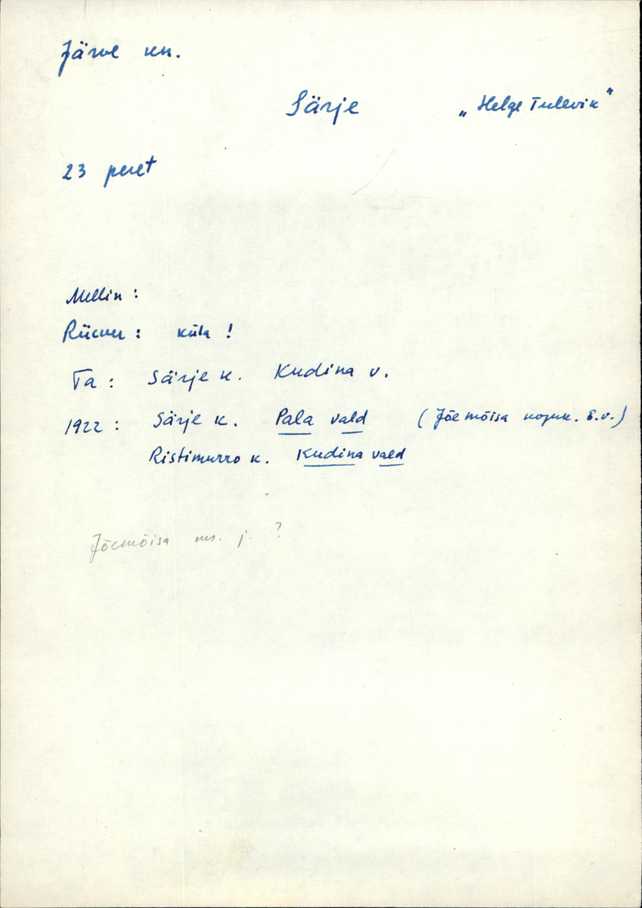 Järve kn.
Särje „Helge Tulevik"
23 peret
Mellin :
Rücker : küla !
Ta : Särje k. Kudina v.
1922 : Särje k. Pala vald ( Jõemõisa koguk. e.v.)
Ristimurro k. Kudina vald
Jõemõisa ms. j. ?